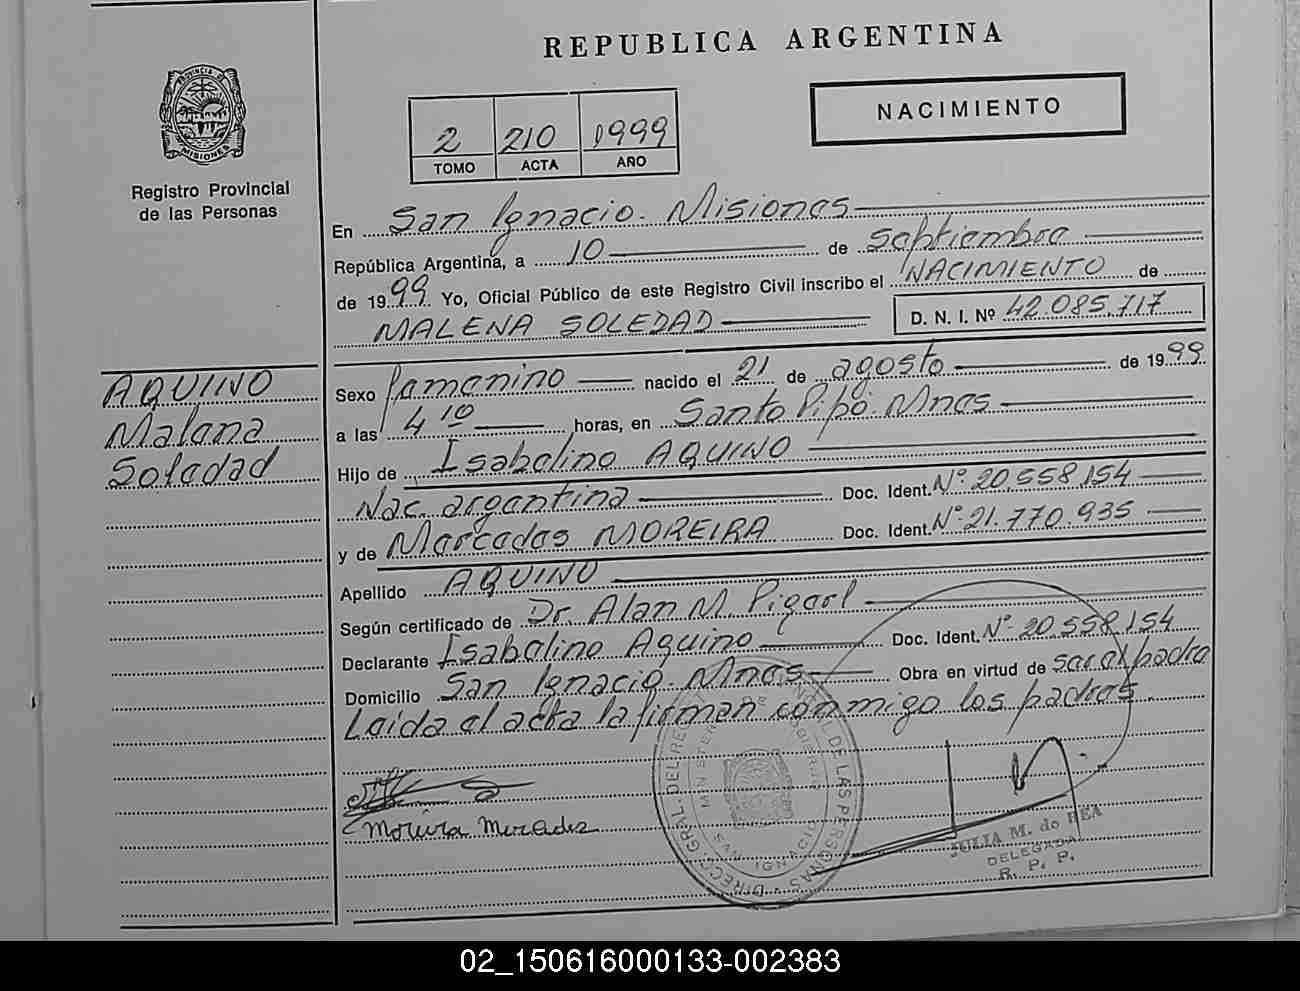 REPUBLICA ARGENTINA
PROVINCIA DE MISIONES
Registro Provincial
de las Personas
2 210 1999
TOMO ACTA AÑO
NACIMIENTO
En San Ignacio. Misiones
República Argentina, a 10 de septiembre
de 1999 Yo, Oficial Público de este Registro Civil inscribo el NACIMIENTO de
MALENA SOLEDAD D. N. I. Nº 42.085.717
AQUINO
Malena
Soledad
Sexo femenino nacido el 21 de agosto de 1999
a las 4 10 horas, en Santo Pipó. Mnes
Hijo de Isabelino AQUINO
Nac. argentina Doc. Ident. Nº 20.558.154
y de Mercedes MOREIRA Doc. Ident. Nº 21.770.935
Apellido AQUINO
Según certificado de Dr. Alan M.
Declarante Isabelino Aquino Doc. Ident. Nº 20.558.154
Domicilio San Ignacio. Mnes Obra en virtud de ser el padre
Leída el acta la firman conmigo los padres.
Moreira Mercedes
DIRECC. GRAL. DEL REG. PROVINCIAL DE LAS PERSONAS
MINISTERIO DE GOBIERNO
SAN IGNACIO
JULIA M. de REA
DELEGADA
R. P. P.
02_150616000133-002383